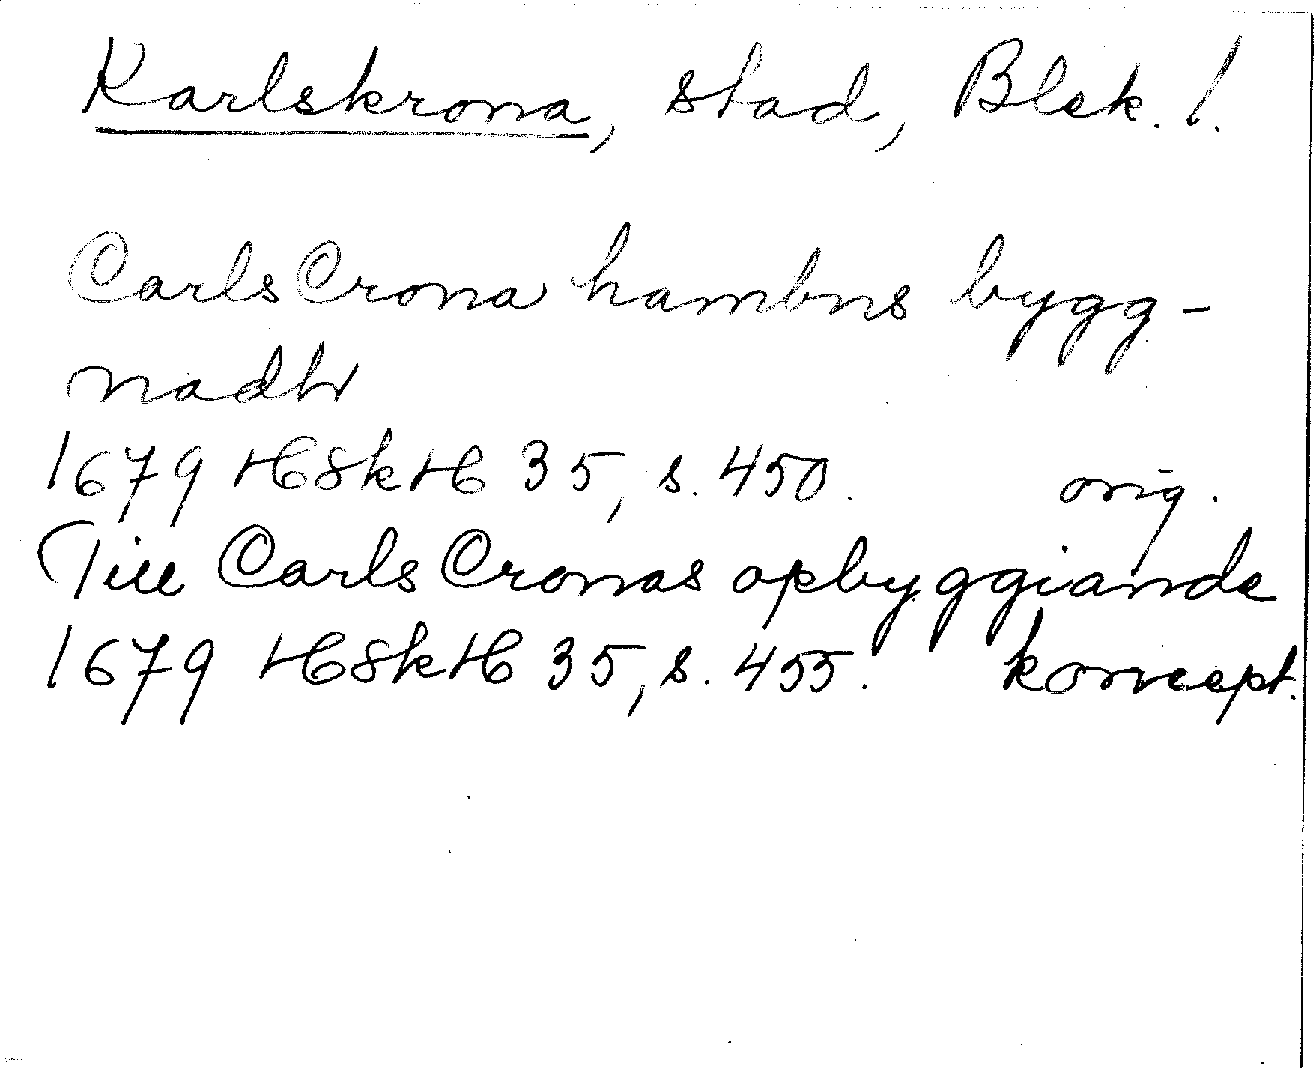 Karlskrona, stad, Blek. l.
CarlsCrona hambns bygg-
nadh
1679 HSkH 35, s. 450. orig.
Till CarlsCronas opbyggiande
1679 HSkH 35, s. 455. koncept.